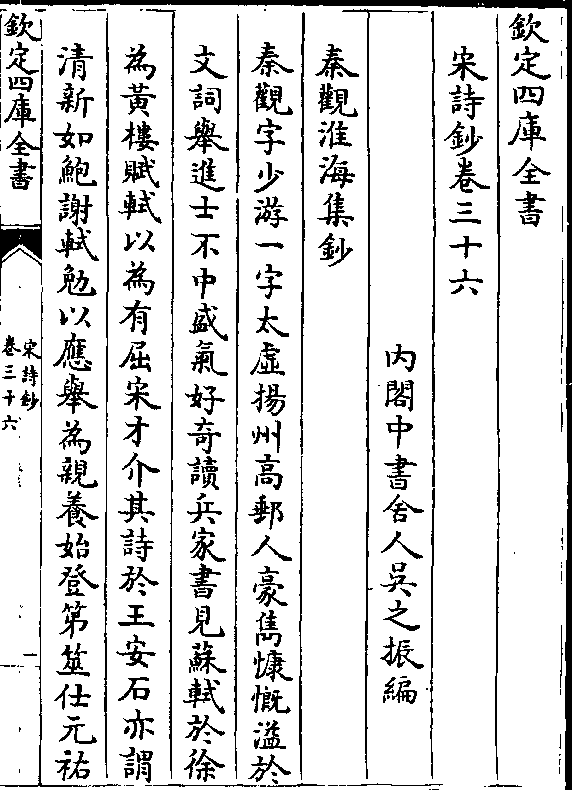 欽定四庫全書
宋詩鈔卷三十六
內閣中書舍人吳之振編
秦觀淮海集鈔
秦觀字少游一字太虛揚州高郵人豪雋慷慨溢於
文詞舉進士不中盛氣好奇讀兵家書見蘇軾於徐
為黃樓賦軾以為有屈宋才介其詩於王安石亦謂
清新如鮑謝軾勉以應舉為親養始登第筮仕元祐
欽定四庫全書
宋詩鈔
卷三十六
一